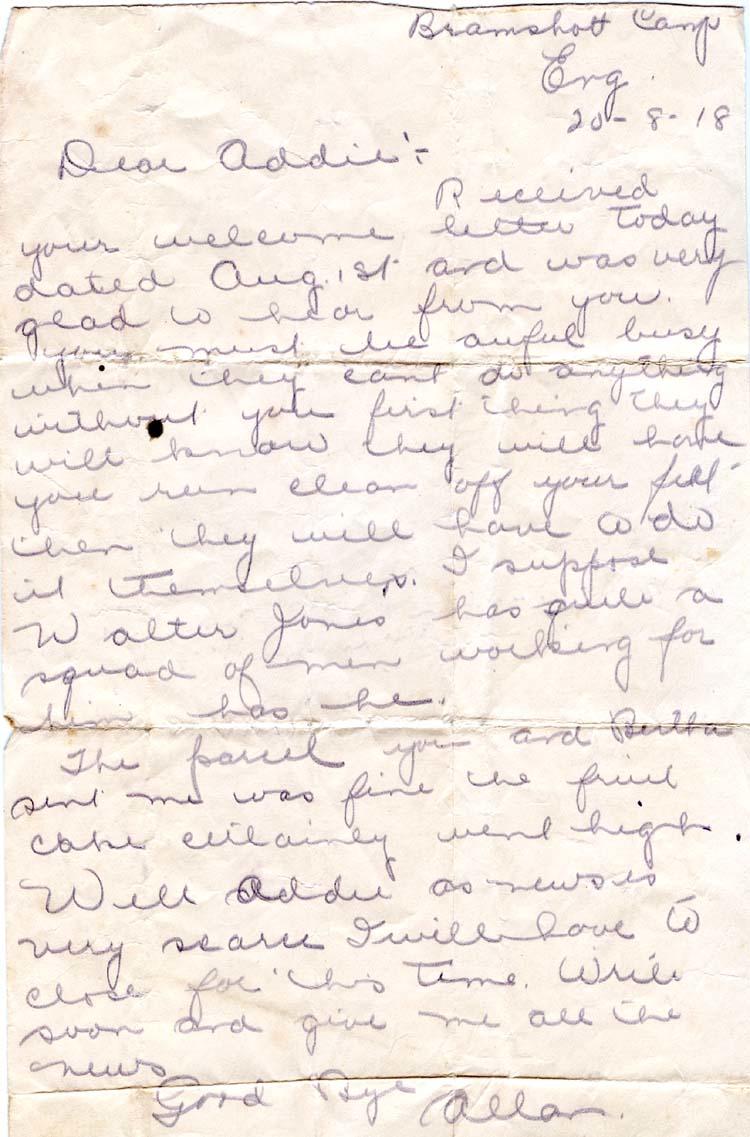 Bramshott Camp
Eng.
20-8-18
Dear Addie:-
Received
your welcome letter today
dated Aug. 1st and was very
glad to hear from you.
you must be awful busy
when they cant do anything
without you first thing they
will know they will have
you run clean off your feet
then they will have to do
it themselves. I suppose
Walter Jones has quite a
squad of men working for
him has he.
The parcel you and Bertha
sent me was fine the fruit
cake certainly went high.
Well Addie as news is
very scarce I will have to
close for this time. Write
soon and give me all the
news
Good Bye Allan.